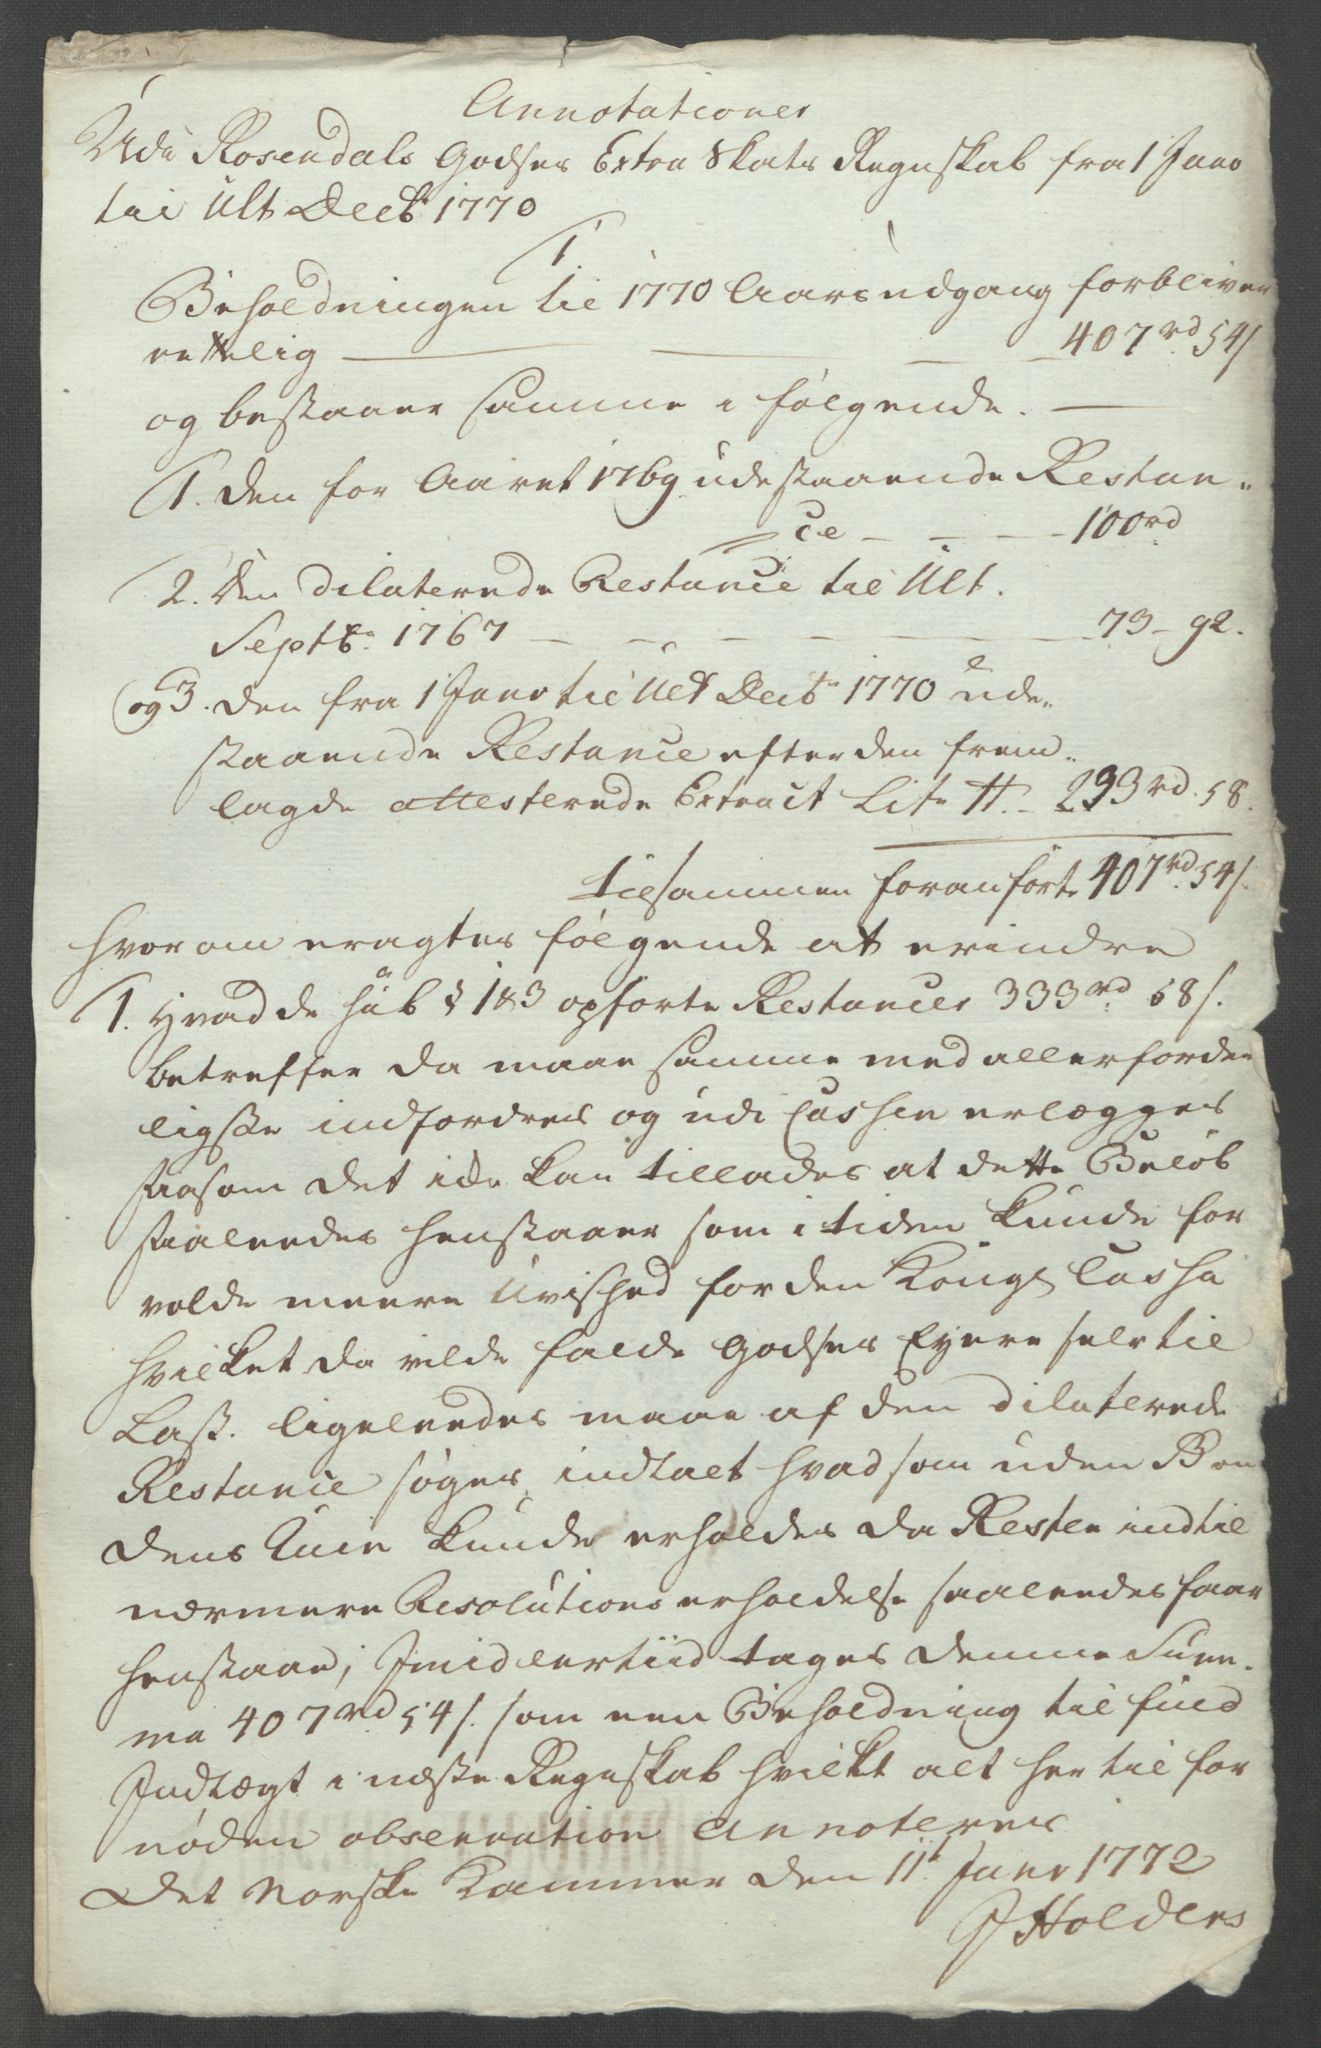 Annotationer
Udi Rosendals Godses Extra Skats Regnskab fra 1 Janv
til Ult Decbr 1770
1
Beholdningen til 1770 Aars udgang forbliver
rettelig — 407 rd 54 s
og bestaaer samme i følgende. —
1. den for Aaret 1769 udestaaende Restan-
ce — 100 rd
2. den dilaterede Restance til Ult.
Septbr. 1767 — 73 - 92.
og 3. den fra 1 Janv til Ult Decbr 1770 ude-
staaende Restance efter den frem-
lagde attesterede Extract Litr H. - 233 rd. 58.
tilsammen foranførte 407 rd 54 s.
hvorom eragtes følgende at erindre
1. Hvad de sub § 1 & 3 opførte Restancer 333 rd 58 s.
betreffer da maae samme med allerforder
ligste indfordres og udi Cassen erlægges
saasom det icke kan tillades at dette Beløb
saaledes henstaaer som i tiden kunde for
volde meere Uvished for den Kongl Cassa
hvilket da vilde falde Godses Eyere selv til
Last. ligeleedes maae af den dilaterede
Restance søges indtalt hvad som uden Bon
dens Ruin kunde erholdes da Resten indtil
nærmere Resolutions erholdelse saaleedes faar
henstaae; Imidlertiid tages denne Sum-
ma 407 rd 54 s. som een Beholdning til fuld
Indtægt i næste Regnskab hvilket alt her til for
nøden observation Annoteres
Det Norske Kammer den 11t Janv 1772
J Holders